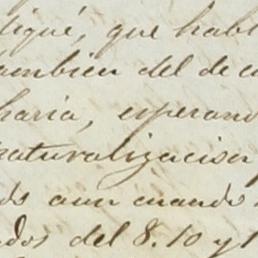 tiqué, que habl
ambien del de c
haria, esperan
naturalizacion
ds aun cuando
dos del 8. 10 y 1